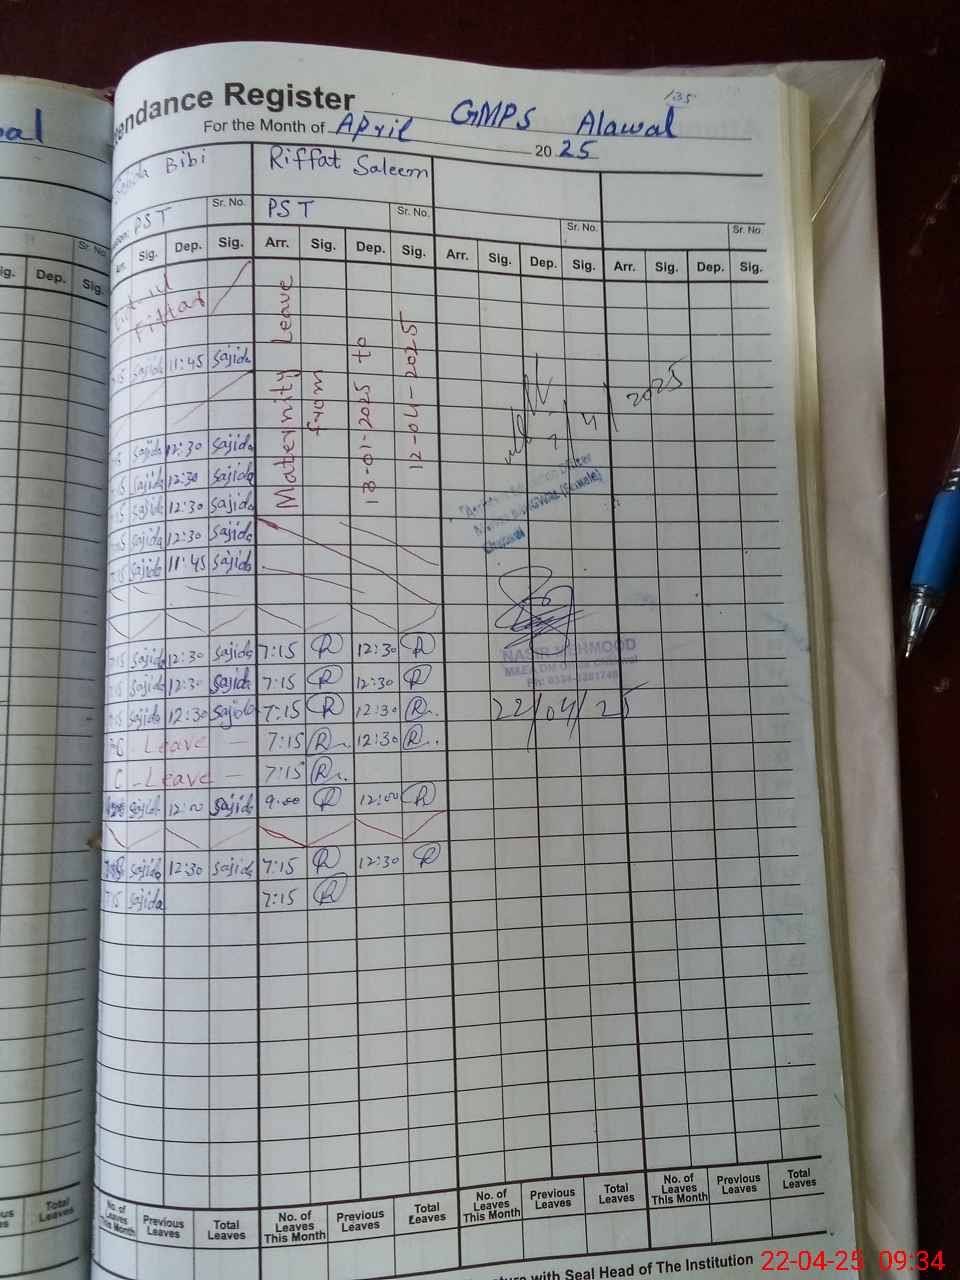 Attendance Register GMPS Alawal 135
For the Month of April 2025
Sajida Bibi Riffat Saleem
PST Sr. No. PST Sr. No. Sr. No. Sr. No.
Arr. Sig. Dep. Sig. Arr. Sig. Dep. Sig. Arr. Sig. Dep. Sig. Arr. Sig. Dep. Sig.
Maternity Leave
from
13-01-2025 to
12-04-2025
Sajida 11:45 Sajida
Sajida 12:30 Sajida
Sajida 12:30 Sajida
Sajida 12:30 Sajida
Sajida 12:30 Sajida
7:15 Sajida 11:45 Sajida
7:15 Sajida 12:30 Sajida 7:15 R 12:30 R
7:15 Sajida 12:30 Sajida 7:15 R 12:30 R
7:15 Sajida 12:30 Sajida 7:15 R 12:30 R
C - Leave - 7:15 R 12:30 R
C - Leave - 7:15 R
Sajida 12:00 Sajida 9:00 R 12:00 R
Sajida 12:30 Sajida 7:15 R 12:30 R
7:15 Sajida 7:15 R
4/2025
(Female)
Chakwal
NASIR MEHMOOD
22/04/25
No. of Leaves This Month Previous Leaves Total Leaves No. of Leaves This Month Previous Leaves Total Leaves No. of Leaves This Month Previous Leaves Total Leaves No. of Leaves This Month Previous Leaves Total Leaves
with Seal Head of The Institution
22-04-25 09:34